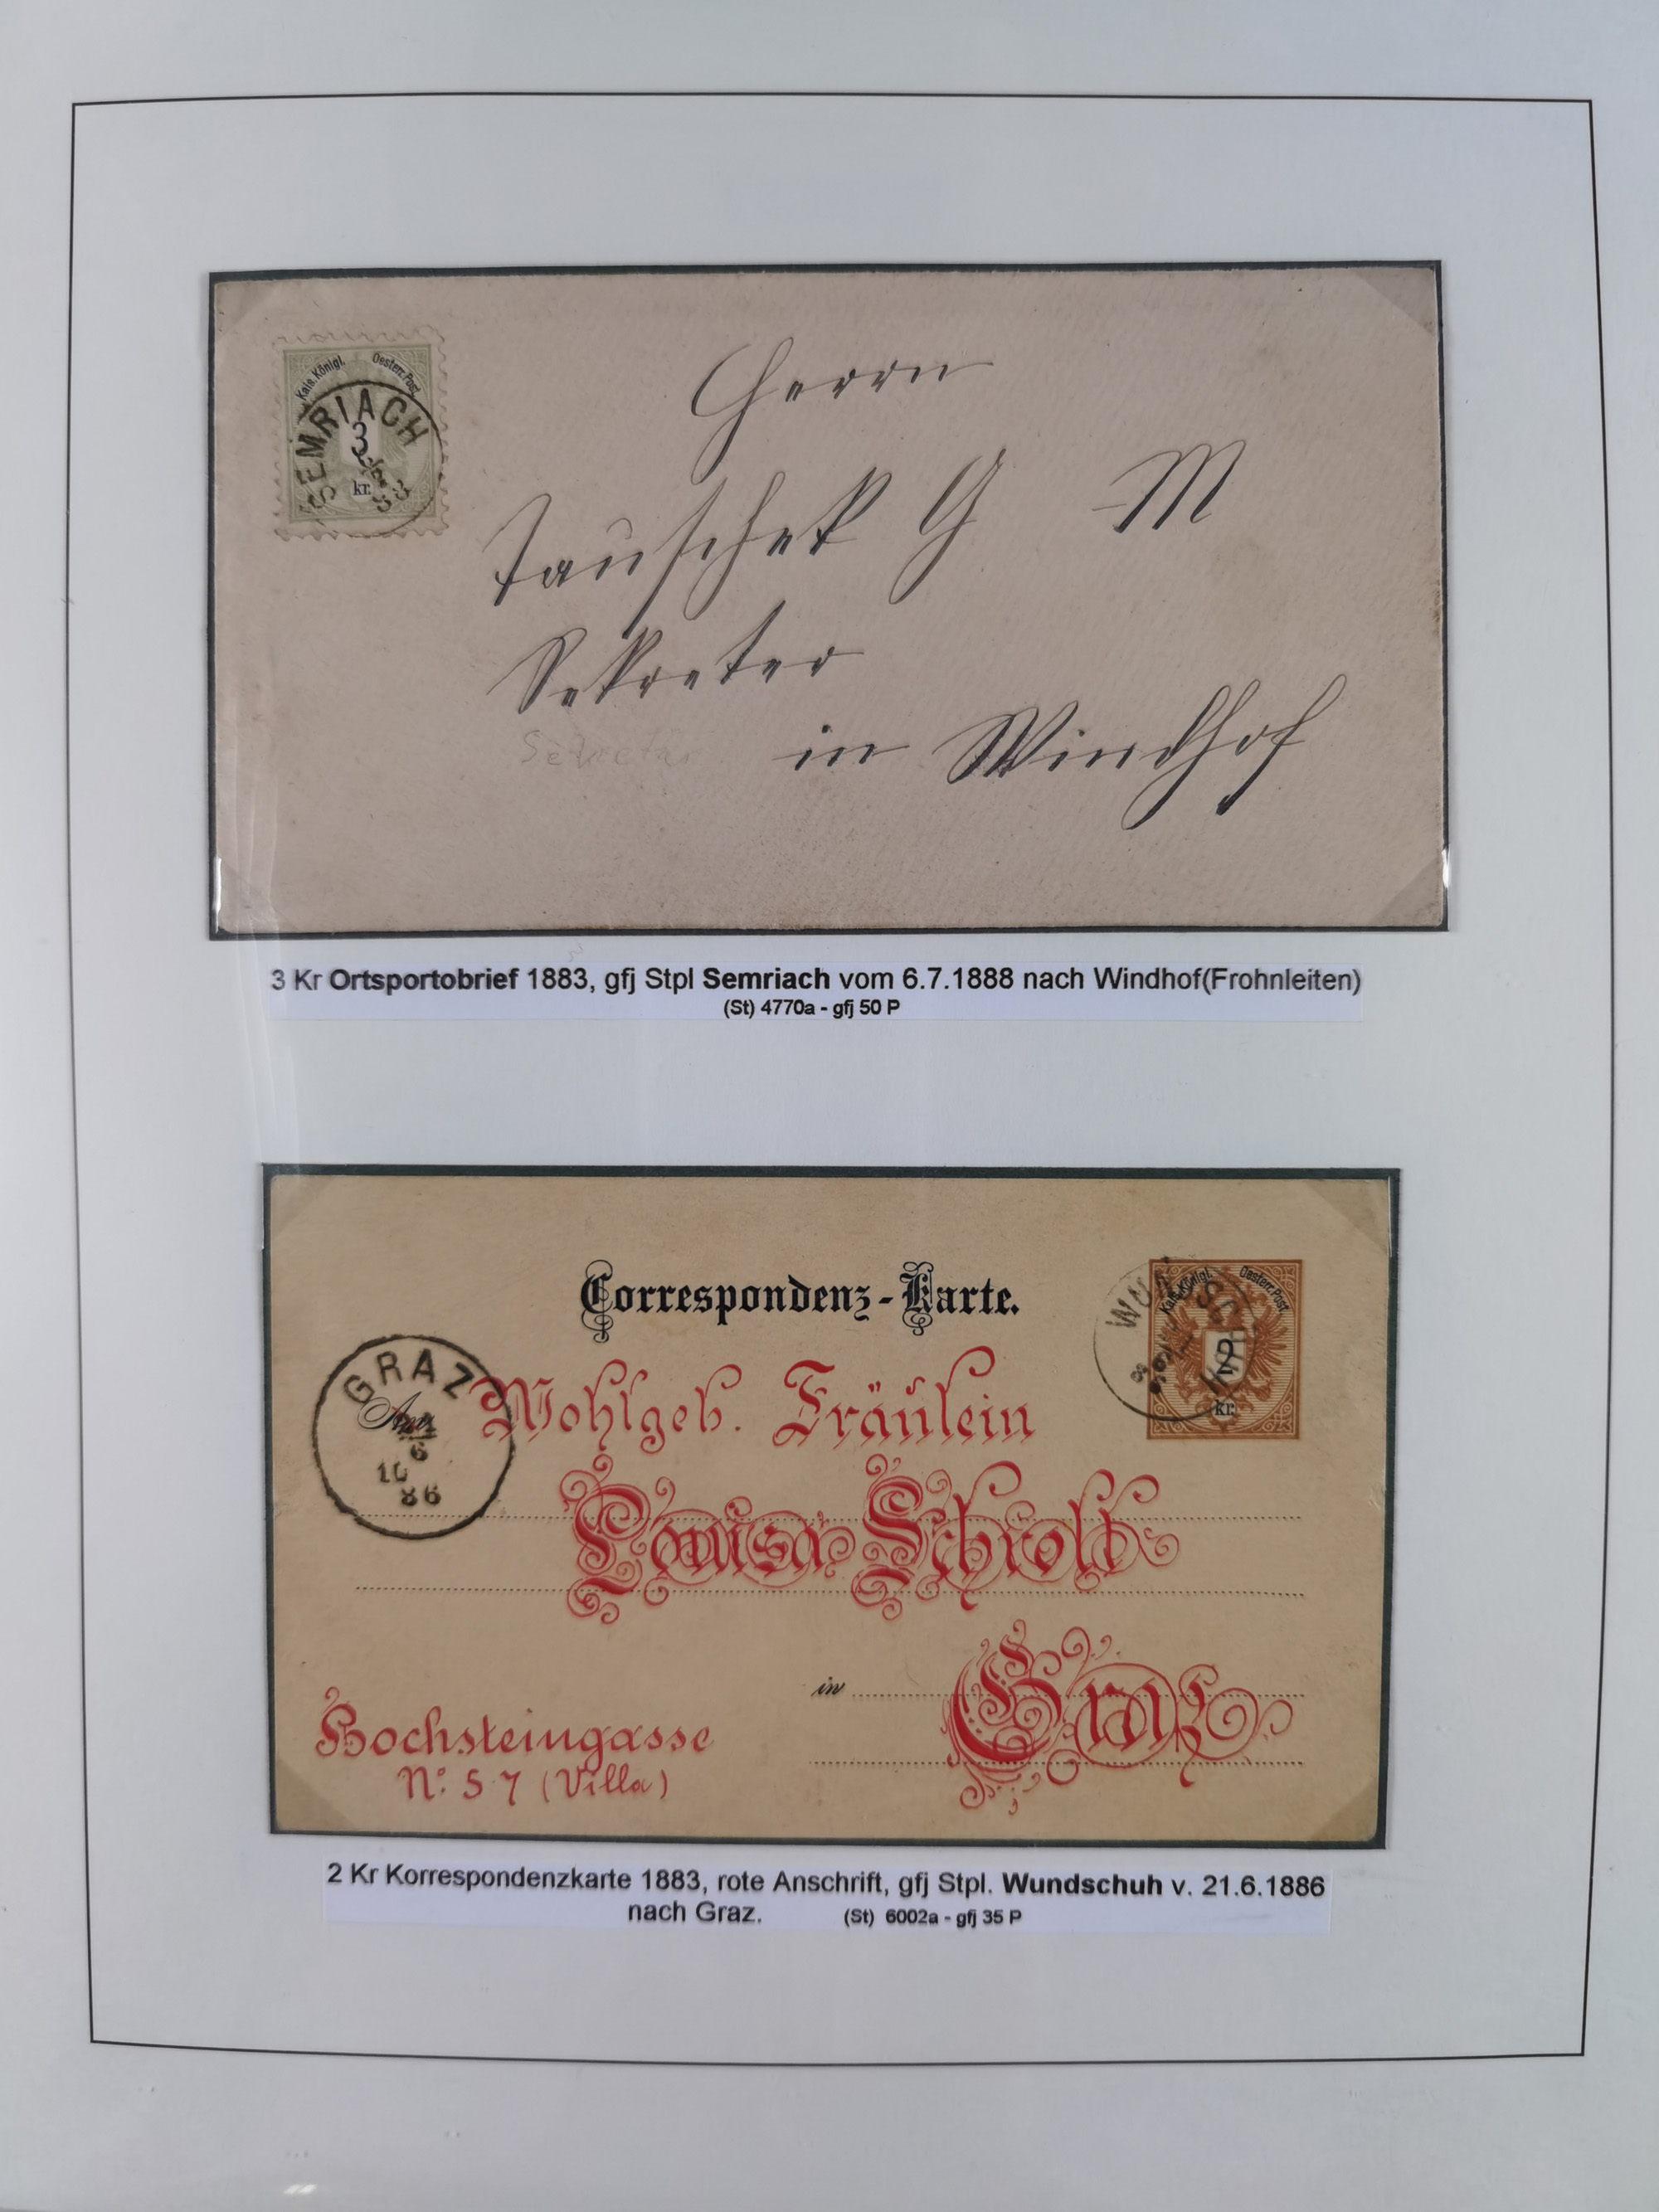 Kais. Königl. Oesterr. Post
3
kr.
SEMRIACH
88
Herrn
Tauschek G M
Sekreter
Sekretär
in Windhof
3 Kr Ortsportobrief 1883, gfj Stpl Semriach vom 6.7.1888 nach Windhof(Frohnleiten)
(St) 4770a - gfj 50 P
Correspondenz-Karte.
Kais. Königl. Oesterr. Post.
2
kr.
GRAZ
An
6
86
Wohlgeb. Fräulein
Louisa Schroll
in Graz
Hochsteingasse
No: 57 (Villa)
2 Kr Korrespondenzkarte 1883, rote Anschrift, gfj Stpl. Wundschuh v. 21.6.1886
nach Graz. (St) 6002a - gfj 35 P